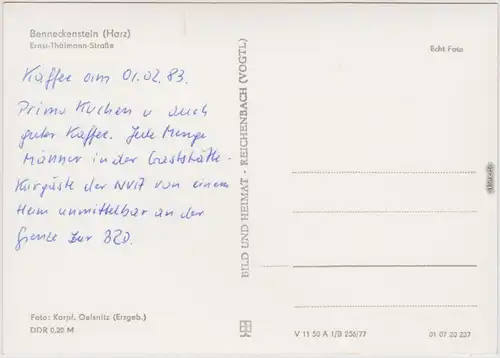 Benneckenstein (Harz)
Ernst-Thälmann-Straße
Kaffee am 01.02.83.
Prima Kuchen u auch
guter Kaffee. Jede Menge
Männer in der Gaststätte -
Kurgäste der NVA von einem
Heim unmittelbar an der
Grenze zur BRD.
Foto: Karpf, Oelsnitz (Erzgeb.)
DDR 0,20 M
BILD UND HEIMAT · REICHENBACH (VOGTL)
Echt Foto
V 11 50 A 1/B 256/77
01 07 20 237